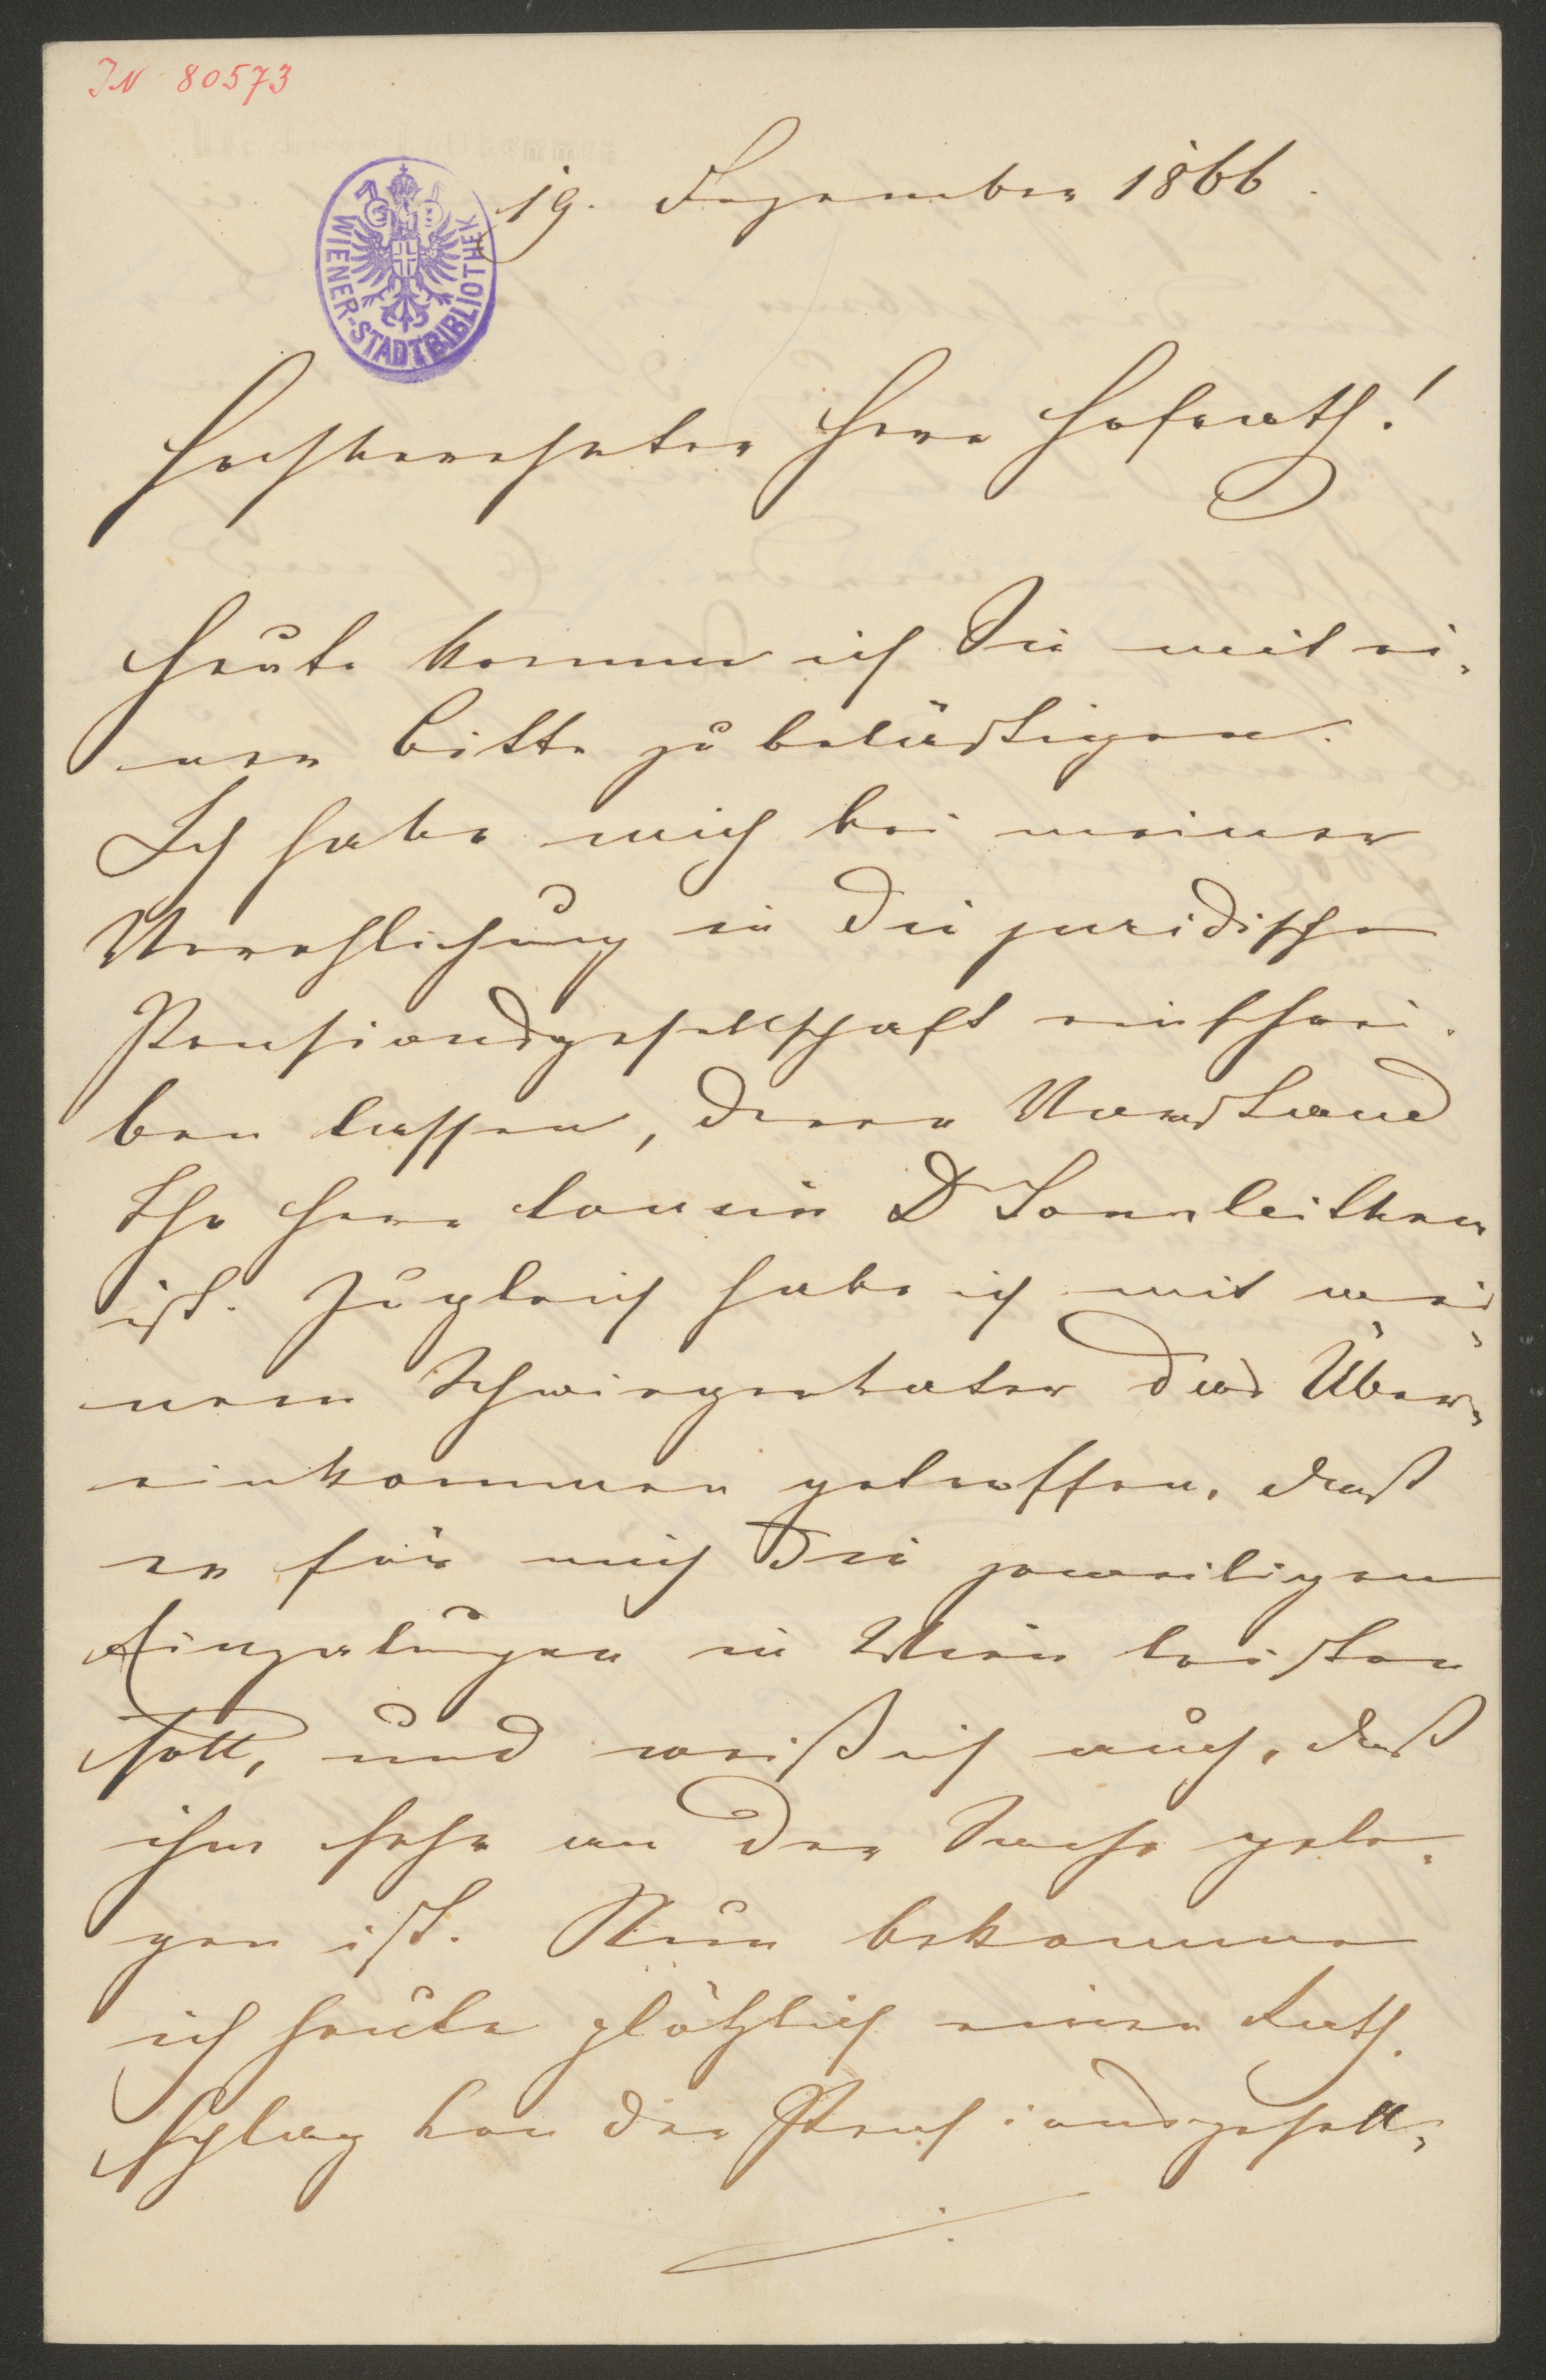 IN 80573
19. Dezember 1866.
WIENER-STADTBIBLIOTHEK
Hochverehrter Herr Hofrath!
Heute komme ich Sie mit ei-
ner Bitte zu belästigen.
Ich habe mich bei meiner
Verehlichung in die juridische
Pensionsgesellschaft einschrei-
ben lassen, deren Vorstand
Ihr Herr Cousin Dr Sonnleithner
ist. Zugleich habe ich mit mei-
nem Schwiegervater das Über-
einkommen getroffen, dass
er für mich die jeweiligen
Einzalungen in Wien leisten
soll, und weiß ich auch, daß
ihm sehr an der Sache gele-
gen ist. Nun bekomme
ich heute plötzlich einen Rath-
schlag von der Pensionsgesell-